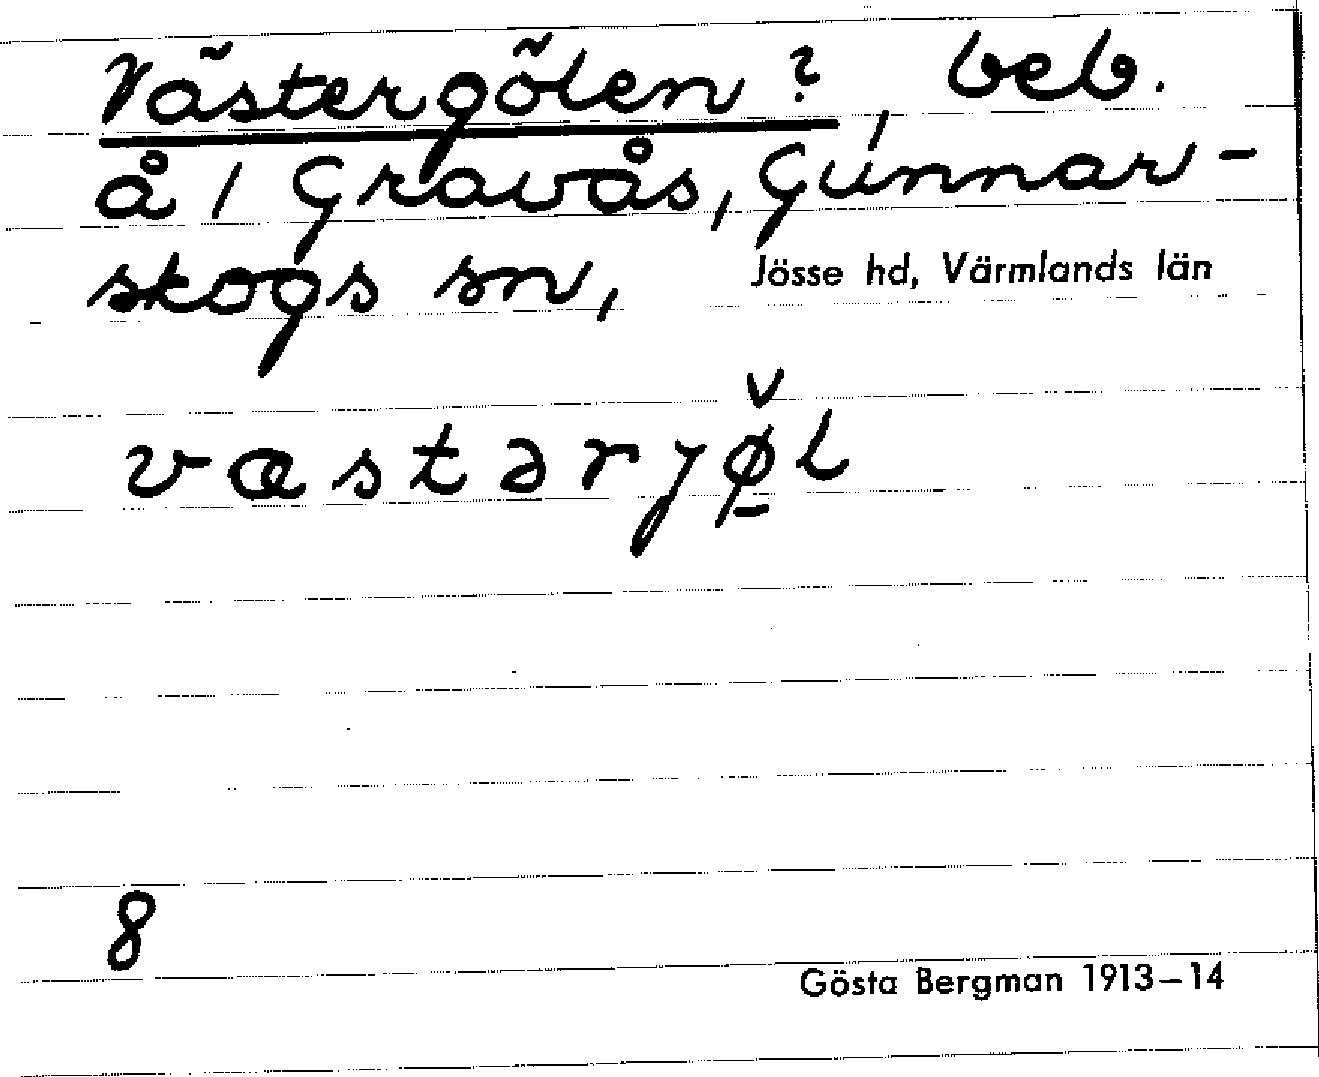 Västergölen?, beb.
å 1 Gravås, Gunnar-
skogs sn, Jösse hd, Värmlands län
væstəryø̲̌l
8
Gösta Bergman 1913–14